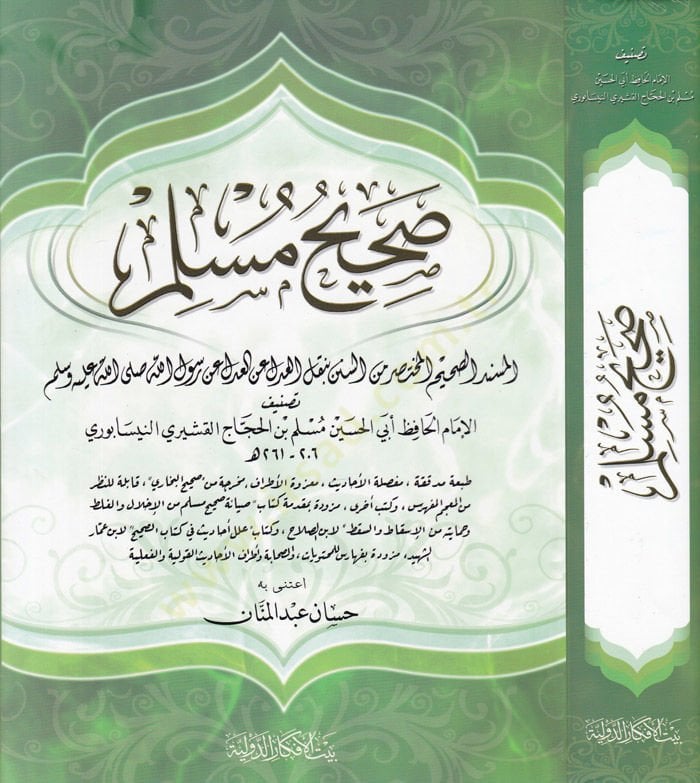 صَحِيحُ مُسْلِم
المسند الصحيح المختصر من السنن بنقل العدل عن العدل عن رسول الله صلى الله عليه وسلم
تصنيف
الإمام الحافظ أبي الحسين مُسْلم بن الحجاج القشيري النيسابوري
٢٠٦ - ٢٦١ هـ
طبعة مدققة، مفصلة الأحاديث، معزوة الأطراف، مخرجة من "صحيح البخاري"، قابلة للنظر
من المعجم المفهرس، وكتب أخرى، مزودة بمقدمة كتاب "صيانة صحيح مسلم من الإخلال والغلط
وحمايته من الإسقاط والسقط" لابن الصلاح، وكتاب "علل أحاديث في كتاب الصحيح" لابن عمّار
الشهيد، مزودة بفهارس للمحتويات، والصحابة وأطراف الأحاديث القولية والفعلية
اعتنى به
حسان عبد المنان
بيت الأفكار الدولية
تصنيف
الإمام الحافظ أبي الحسين
مُسْلم بن الحجاج القشيري النيسابوري
صَحِيحُ مُسْلِم
بيت الأفكار الدولية